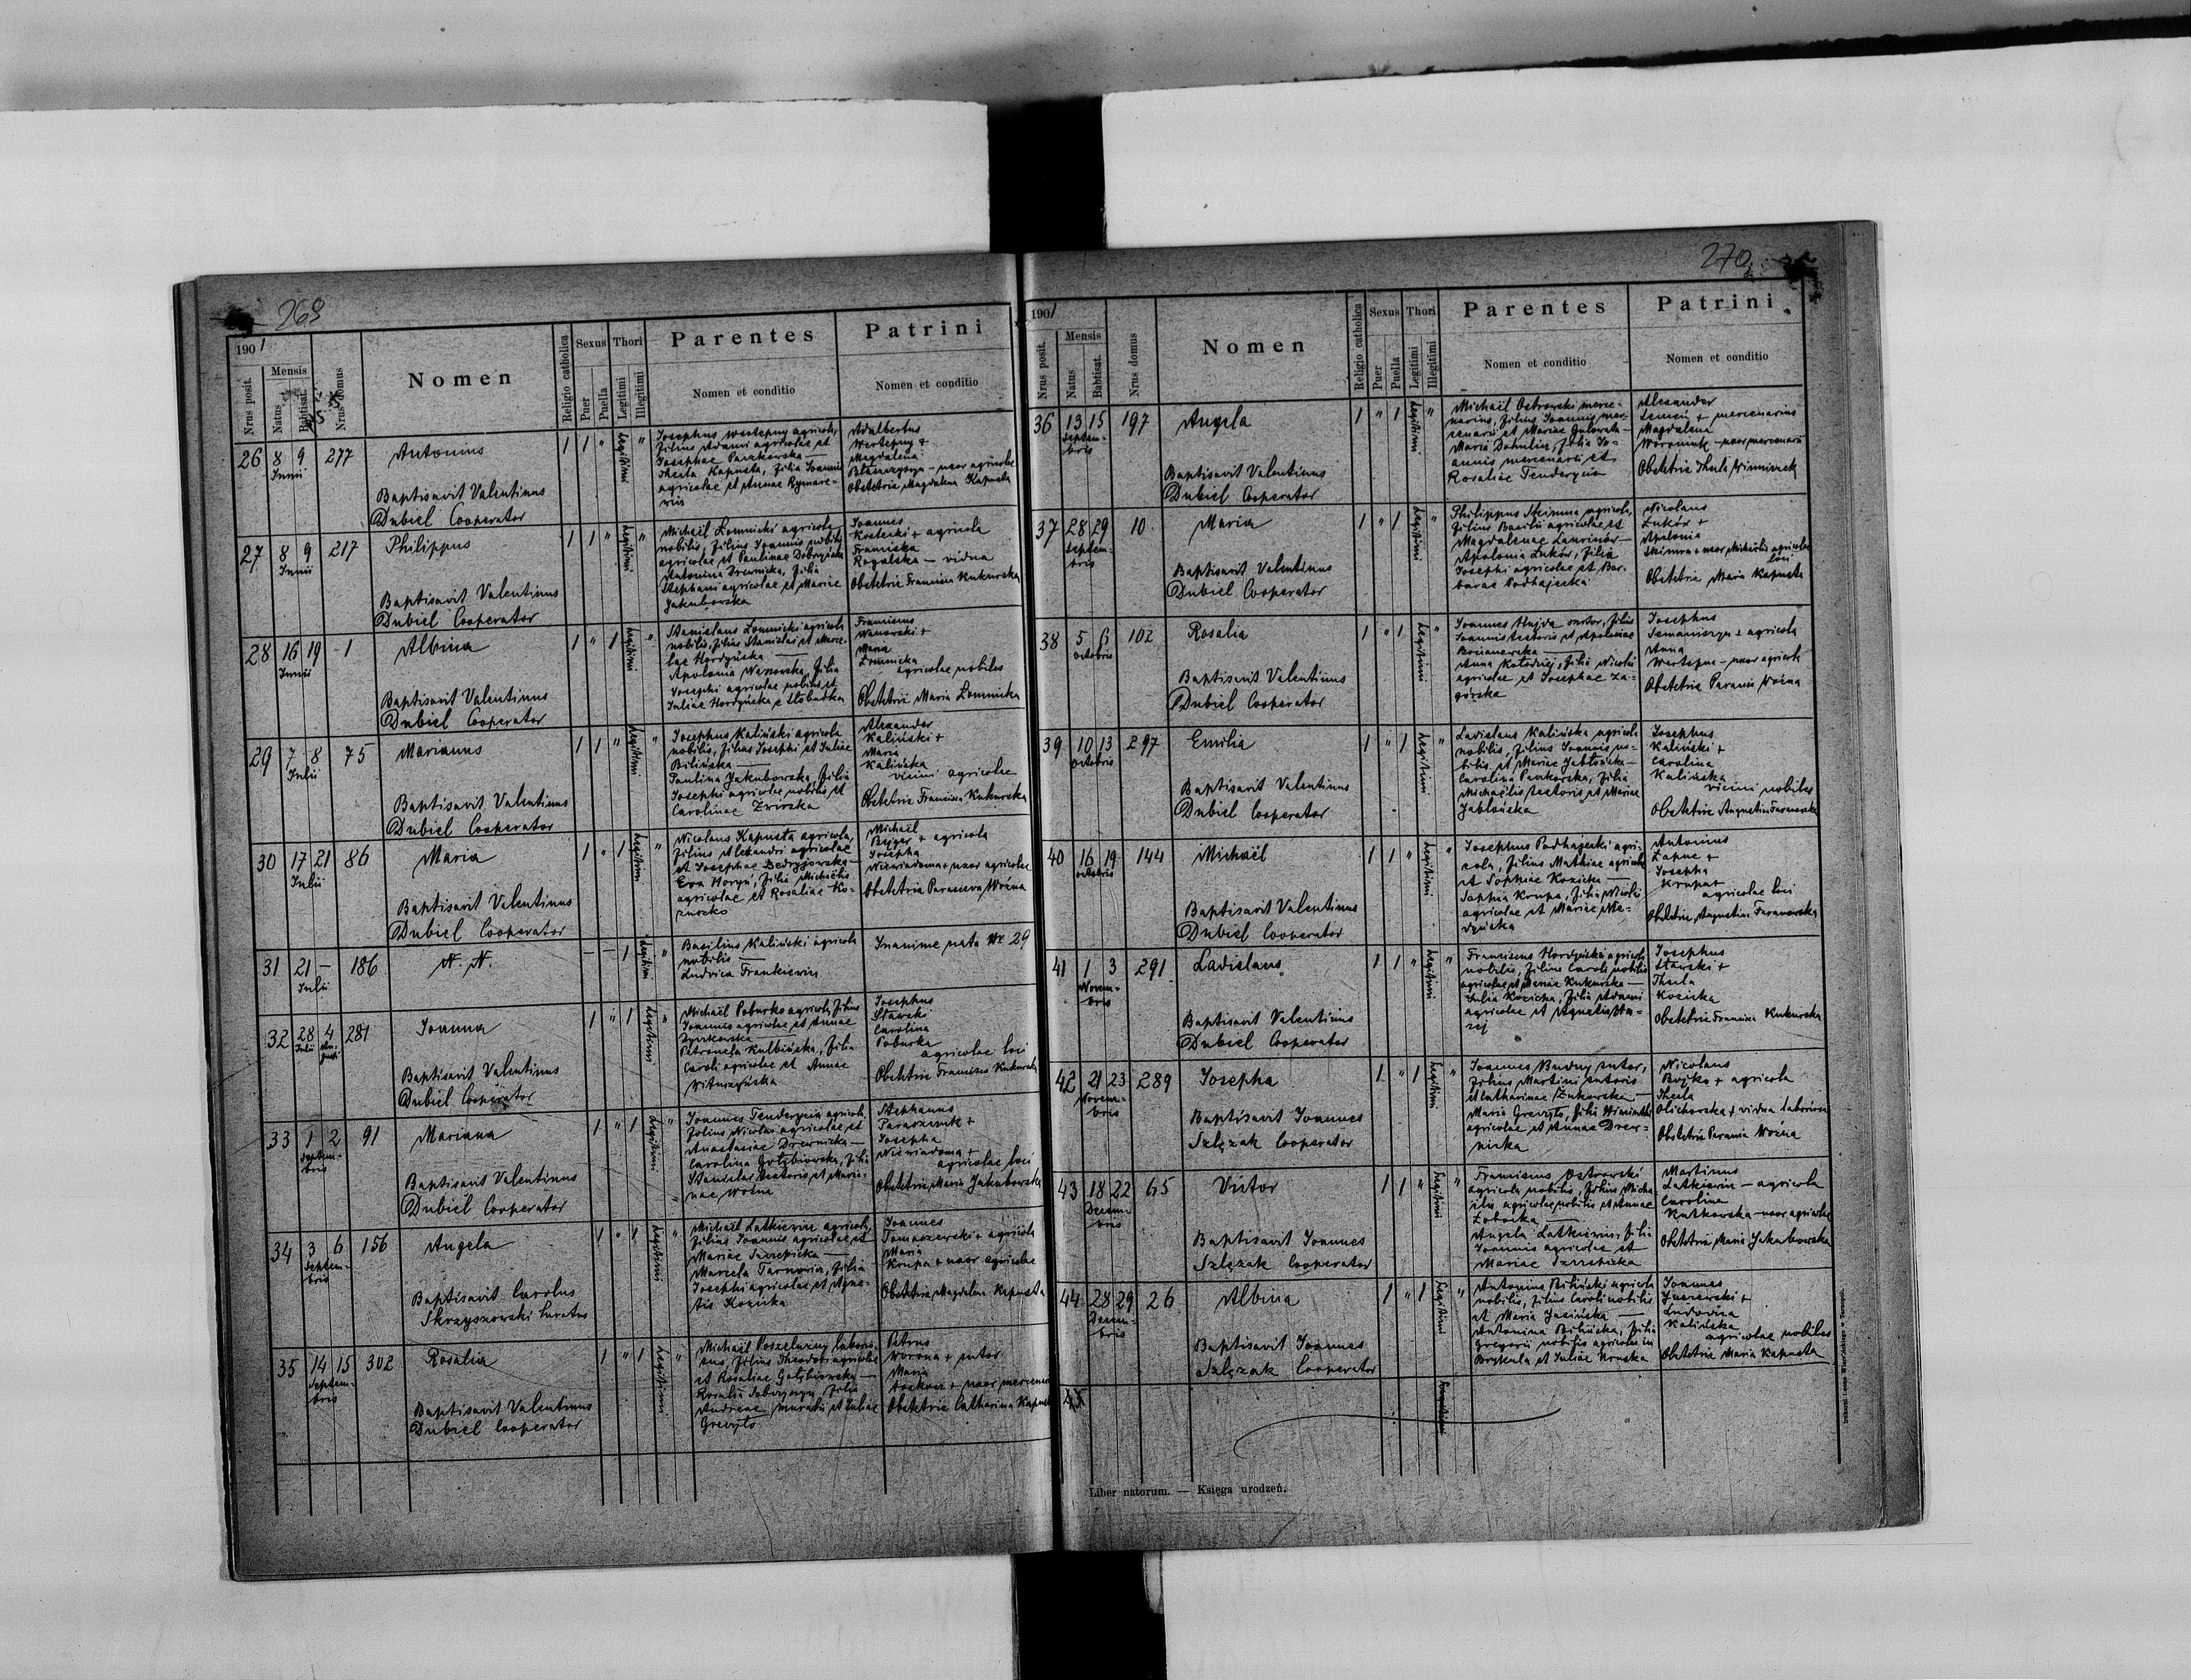 269
1901
Nrus posit.
Mensis
Natus
Babtisat.
Nrus domus
Nomen
Religio catholica
Sexus
Puer
Puella
Thori
Legitimi
Illegitimi
Parentes
Nomen et conditio
Patrini
Nomen et conditio
26 8 9 277 Antonius 1 1 " legitimi "
Junii
Baptisavit Valentinus
Dubiel Cooperator
Josephus Wertepny agricola,
filius Adami agricolae et
Josephae Paczkowska —
Thecla Kapusta, filia Joannis
agricolae et Annae Rymare-
Adalbertus
Wertepny +
Magdalena
Błaszczyszyn – uxor agricolae
Obstetrix Magdalena Kapusta
27 8 9 217 Philippus 1 1 " legitimi "
Junii
Baptisavit Valentinus
Dubiel Cooperator
Michaël Łomnicki agricola
nobilis, filius Joannis nobilis
agricolae et Paulinae Dobrzyńska
Antonina Drewnicka, filia
Stephani agricolae et Mariae
Jakubowska
Joannes
Kostecki + agricola
Francisca
Rogalska — vidua
Obstetrix Francisca Kukurska
28 16 19 1 Albina 1 " 1 legitimi "
Junii
Baptisavit Valentinus
Dubiel Cooperator
Stanislaus Łomnicki agricola
nobilis, filius Stanislai et Marce-
lae Hordyńska —
Apolonia Wanowska, filia
Josephi agricolae nobilis et
Juliae Hordyńska e Słobodka
Franciscus
Wanowski +
Maria
Łomnicka
agricolae nobiles
Obstetrix Maria Łomnicka
29 7 8 75 Marianus 1 1 " legitimi "
Julii
Baptisavit Valentinus
Dubiel Cooperator
Josephus Kaliński agricola
nobilis, filius Josephi et Juliae
Bilińska —
Paulina Jakubowska, filia
Josephi agricolae nobilis et
Carolinae Zwirska
Alexander
Kaliński +
Maria
Kalińska
vicini agricolae
Obstetrix Francisca Kukurska
30 17 21 86 Maria 1 " 1 legitimi "
Julii
Baptisavit Valentinus
Dubiel Cooperator
Nicolaus Kapusta agricola,
filius Alexandri agricolae
et Josephae Bedryjowska —
Eva Horyń, filia Michaëlis
agricolae et Rosaliae Ko-
Michaël
Bejger + agricola
Josepha
Niewiadoma + uxor agricolae
Obstetrix Parasceva Woźna
31 21 — 186 N. N. — — 1 legitimi "
Julii
Basilius Kaliński agricola
nobilis —
Ludvica Frankiewicz
Inanime nata Nr 29
32 28 4 281 Joanna 1 " 1 legitimi "
Julii Augusti
Baptisavit Valentinus
Dubiel Cooperator
Michaël Poburko agricola, filius
Joannis agricolae et Annae
Petronela Kulbińska, filia
Caroli agricolae et Annae
Josephus
Stawski
Carolina
Poburka
agricolae loci
Obstetrix Francisca Kukurska
33 1 2 91 Mariana 1 " 1 legitimi "
Septembris
Baptisavit Valentinus
Dubiel Cooperator
Joannes Tenderycia agricola,
filius Nicolai agricolae et
Anastasiae Drewnicka —
Carolina Gołębiowska, filia
Stanislai textoris et Maria-
nae Woźna
Stephanus
Parasziuk +
Josepha
Niewiadoma +
agricolae loci
Obstetrix Maria Jakubowska
34 3 6 156 Angela 1 " 1 legitimi "
Septembris
Baptisavit Carolus
Skrzyszowski Curatus
Michaël Latkiewicz agricola,
filius Joannis agricolae et
Mariae Szczepicka —
Marcela Tarnowicz, filia
Josephi agricolae et Agne-
tis Kozicka
Joannes
Tomaszewski + agricola
Maria
Krupa + uxor agricolae
Obstetrix Magdalena Kapusta
35 14 15 302 Rosalia 1 " 1 legitimi "
Septembris
Baptisavit Valentinus
Dubiel Cooperator
Michaël Poszelużny
filius Theodori agricolae
et Rosaliae Gołębiowska —
Rosalia filia
Andreae murarii et Juliae
Grewyło
Petrus
Worona + sutor
Maria
+ uxor
Obstetrix Catharina Kapusta
270
1901
Nrus posit.
Mensis
Natus
Babtisat.
Nrus domus
Nomen
Religio catholica
Sexus
Puer
Puella
Thori
Legitimi
Illegitimi
Parentes
Nomen et conditio
Patrini
Nomen et conditio
36 13 15 197 Angela 1 " 1 legitimi "
Septem-
bris
Baptisavit Valentinus
Dubiel Cooperator
Michaël Ostrowski merce-
narius, filius Joannis mer-
cenarii et Mariae
Maria filia Jo-
annis mercenarii et
Rosaliae Tenderycia
Alexander
+ mercenarius
Magdalena
Woroniuk – uxor mercenarii
Obstetrix Thecla Winniczek
37 28 29 10 Maria 1 " 1 legitimi "
Septem-
bris
Baptisavit Valentinus
Dubiel Cooperator
Philippus Skimra agricola,
filius Basilii agricolae et
Magdalenae Laurinów —
Apolonia Łuków, filia
Josephi agricolae et Bar-
barae Podhajecka
Nicolaus
Łuków +
Apolonia
Skimra + uxor Michaëlis agricolae
loci
Obstetrix Maria Kapusta
38 5 6 102 Rosalia 1 " 1 legitimi "
Octobris
Baptisavit Valentinus
Dubiel Cooperator
Joannes Hujda sutor, filius
Joannis textoris et Apoloniae
Anna Kołodziej, filia Nicolai
agricolae et Josephae Za-
górska
Josephus
Semaniszyn + agricola
Anna
Wertepna – uxor agricolae
Obstetrix Parania Woźna
39 10 13 297 Emilia 1 " 1 legitimi "
Octobris
Baptisavit Valentinus
Dubiel Cooperator
Ladislaus Kaliński agricola
nobilis, filius Joannis no-
bilis et Mariae Jabłońska —
Carolina Paczkowska, filia
Michaëlis textoris et Mariae
Jabłońska
Josephus
Kaliński +
Carolina
Kalińska
vicini nobiles
Obstetrix Augustina Taranowska
40 16 19 144 Michaël 1 1 " legitimi "
Octobris
Baptisavit Valentinus
Dubiel Cooperator
Josephus Podhajecki agri-
cola, filius Mathiae agricolae
et Sophiae Kozicka —
Sophia Krupa, filia Nicolai
agricolae et Mariae
Antonius
Łapuc +
Josepha
Krupa +
agricolae loci
Obstetrix Augustina Taranowska
41 1 3 291 Ladislaus 1 1 " legitimi "
Novem-
bris
Baptisavit Valentinus
Dubiel Cooperator
Franciscus Hordyński agricola
nobilis, filius Caroli nobilis
agricolae et Mariae Kukurska —
Julia Kozicka, filia Adami
agricolae et Agnetis
Josephus
Stawski +
Thecla
Kozicka
Obstetrix Francisca Kukurska
42 21 23 289 Josepha 1 " 1 legitimi "
Novem-
bris
Baptisavit Joannes
Szlęzak Cooperator
Joannes Budny sutor,
filius Martini sutoris
et Catharinae Żukowska —
Maria Grewyło, filia Hiacinthi
agricolae et Annae Drew-
nicka
Nicolaus
Bojko + agricola
Thecla
Olichowska + vidua
Obstetrix Parania Woźna
43 18 22 65 Victor 1 1 " legitimi "
Decem-
bris
Baptisavit Joannes
Szlęzak Cooperator
Franciscus Ostrowski
agricola nobilis, filius Micha-
ëlis agricolae nobilis et Annae
Angela Latkiewicz, filia
Joannis agricolae et
Mariae Szczepicka
Martinus
Latkiewicz — agricola
Carolina
Kutkowska – uxor agricolae
Obstetrix Maria Jakubowska
44 28 29 26 Albina 1 " 1 legitimi "
Decem-
bris
Baptisavit Joannes
Szlęzak Cooperator
Antonius Biliński agricola
nobilis, filius Caroli nobilis
et Maria Jasińska —
Antonina Bilińska, filia
Gregorii nobilis agricolae in
Brykula et Juliae
Joannes
+
Ludovica
Kalińska
agricolae nobiles
Obstetrix Maria Kapusta
45
Liber natorum. — Księga urodzeń.